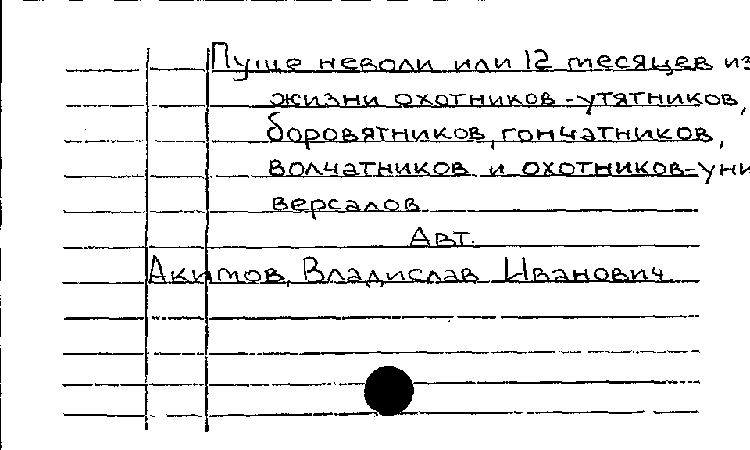 Пуще неволи или 12 месяцев из
жизни охотников-утятников,
боровятников, гончатников,
волчатников и охотников-уни
версалов
Авт.
Акимов, Владислав Иванович